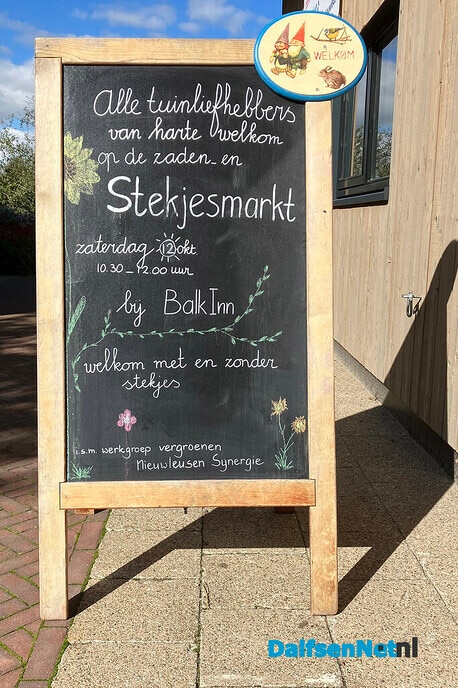 WELKOM
Alle tuinliefhebbers
van harte welkom
op de zaden- en
Stekjesmarkt
zaterdag 12 okt.
10.30 - 12.00 uur
bij BalkInn
welkom met en zonder
stekjes
i.s.m. werkgroep vergroenen
Nieuwleusen Synergie
DalfsenNet.nl